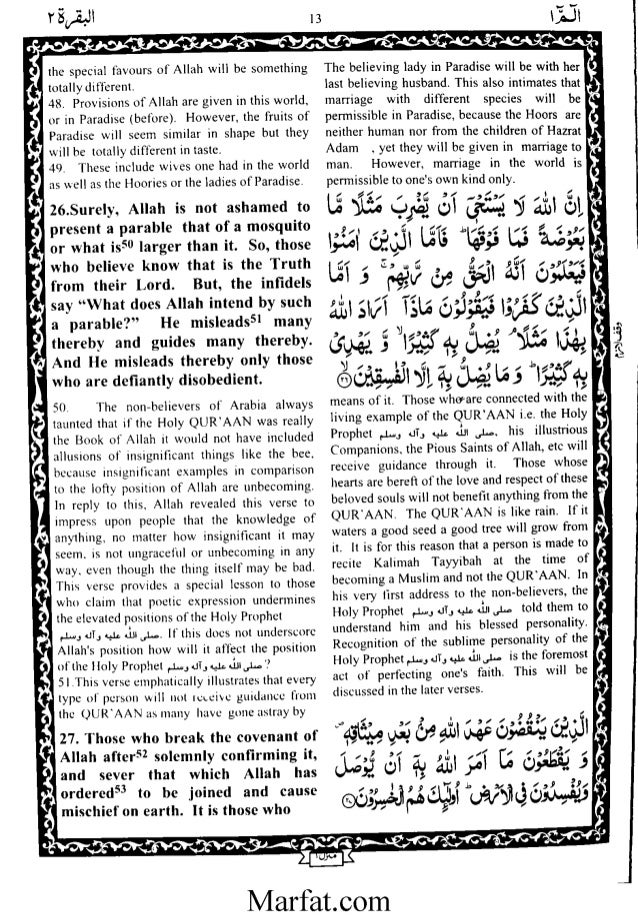 البقرة ٢
13
الٓمّٓ ١
the special favours of Allah will be something
totally different.
48. Provisions of Allah are given in this world,
or in Paradise (before). However, the fruits of
Paradise will seem similar in shape but they
will be totally different in taste.
49. These include wives one had in the world
as well as the Hoories or the ladies of Paradise.
The believing lady in Paradise will be with her
last believing husband. This also intimates that
marriage with different species will be
permissible in Paradise, because the Hoors are
neither human nor from the children of Hazrat
Adam , yet they will be given in marriage to
man. However, marriage in the world is
permissible to one's own kind only.
26.Surely, Allah is not ashamed to
present a parable that of a mosquito
or what is50 larger than it. So, those
who believe know that is the Truth
from their Lord. But, the infidels
say “What does Allah intend by such
a parable?” He misleads51 many
thereby and guides many thereby.
And He misleads thereby only those
who are defiantly disobedient.
اِنَّ اللّٰهَ لَا يَسْتَحْيٖٓ اَنْ يَّضْرِبَ مَثَلًا مَّا
بَعُوْضَةً فَمَا فَوْقَهَا ؕ فَاَمَّا الَّذِيْنَ اٰمَنُوْا
فَيَعْلَمُوْنَ اَنَّهُ الْحَقُّ مِنْ رَّبِّهِمْ ۚ وَ اَمَّا
الَّذِيْنَ كَفَرُوْا فَيَقُوْلُوْنَ مَاذَاۤ اَرَادَ اللّٰهُ
بِهٰذَا مَثَلًا ۘ يُضِلُّ بِهٖ كَثِيْرًا ۙ وَّ يَهْدِيْ
بِهٖ كَثِيْرًا ؕ وَ مَا يُضِلُّ بِهٖۤ اِلَّا الْفٰسِقِيْنَ ۙ۲۶
50. The non-believers of Arabia always
taunted that if the Holy QUR'AAN was really
the Book of Allah it would not have included
allusions of insignificant things like the bee,
because insignificant examples in comparison
to the lofty position of Allah are unbecoming.
In reply to this, Allah revealed this verse to
impress upon people that the knowledge of
anything, no matter how insignificant it may
seem, is not ungraceful or unbecoming in any
way, even though the thing itself may be bad.
This verse provides a special lesson to those
who claim that poetic expression undermines
the elevated positions of the Holy Prophet
صلى الله عليه وآله وسلم. If this does not underscore
Allah's position how will it affect the position
of the Holy Prophet صلى الله عليه وآله وسلم ?
51.This verse emphatically illustrates that every
type of person will not receive guidance from
the QUR'AAN as many have gone astray by
means of it. Those who are connected with the
living example of the QUR'AAN i.e. the Holy
Prophet صلى الله عليه وآله وسلم, his illustrious
Companions, the Pious Saints of Allah, etc will
receive guidance through it. Those whose
hearts are bereft of the love and respect of these
beloved souls will not benefit anything from the
QUR'AAN. The QUR'AAN is like rain. If it
waters a good seed a good tree will grow from
it. It is for this reason that a person is made to
recite Kalimah Tayyibah at the time of
becoming a Muslim and not the QUR'AAN. In
his very first address to the non-believers, the
Holy Prophet صلى الله عليه وآله وسلم told them to
understand him and his blessed personality.
Recognition of the sublime personality of the
Holy Prophet صلى الله عليه وآله وسلم is the foremost
act of perfecting one's faith. This will be
discussed in the later verses.
27. Those who break the covenant of
Allah after52 solemnly confirming it,
and sever that which Allah has
ordered53 to be joined and cause
mischief on earth. It is those who
الَّذِيْنَ يَنْقُضُوْنَ عَهْدَ اللّٰهِ مِنْۢ بَعْدِ مِيْثَاقِهٖ ۪
وَ يَقْطَعُوْنَ مَاۤ اَمَرَ اللّٰهُ بِهٖۤ اَنْ يُّوْصَلَ
وَ يُفْسِدُوْنَ فِي الْاَرْضِ ؕ اُولٰٓئِكَ هُمُ الْخٰسِرُوْنَ ۲۷
منزل ١
Marfat.com